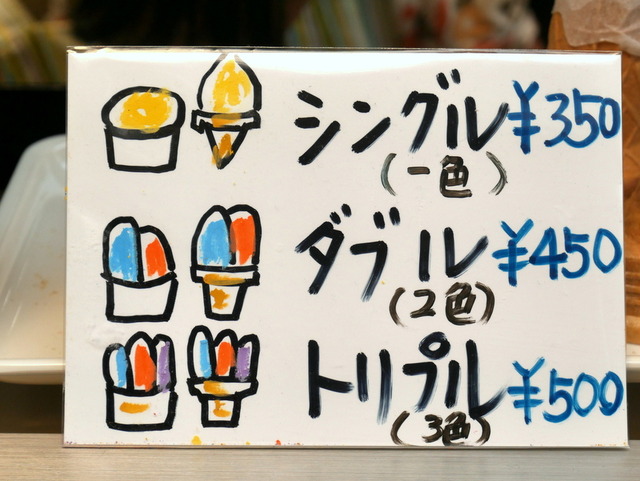 シングル ¥350
(一色)
ダブル ¥450
(2色)
トリプル ¥500
(3色)